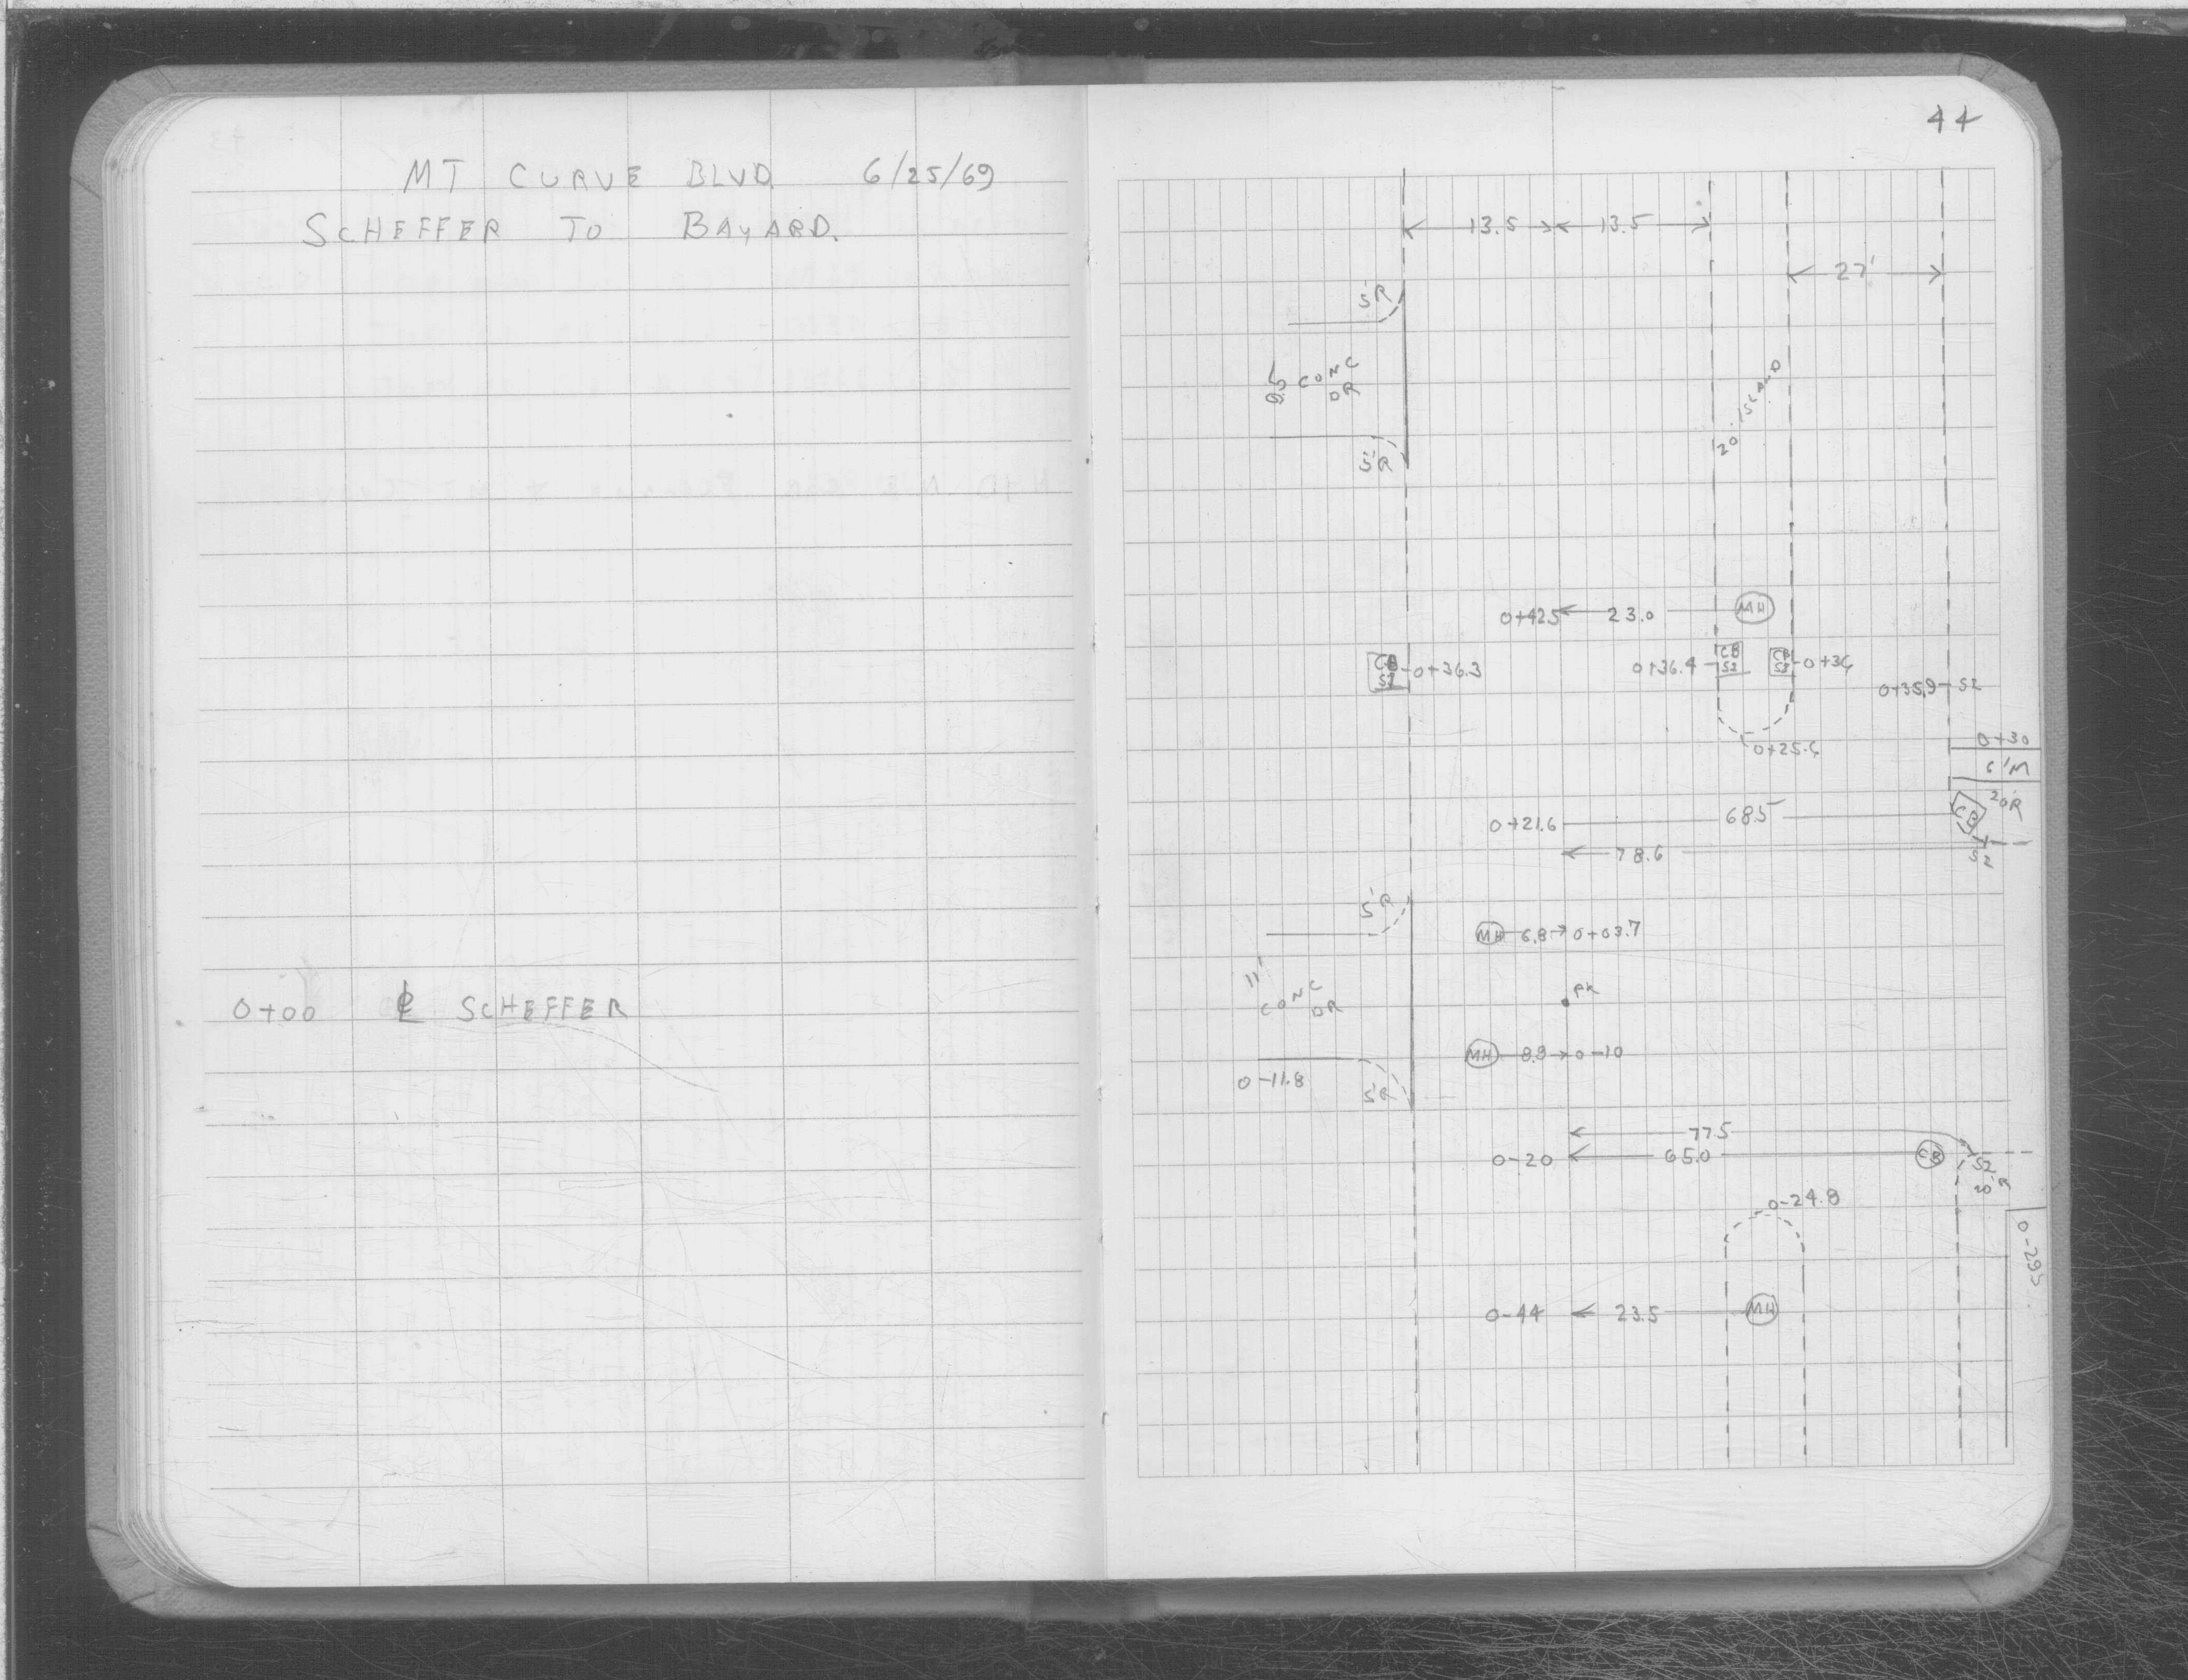 MT CURVE BLVD. 6/25/69
SCHEFFER TO BAYARD.
0+00 ℄ SCHEFFER
44
13.5 13.5
27'
5'R
CONC
DR
20' ISLAND
5'R
0+42.5 23.0 MH
CB
S2
0+36.3
0+36.4
CB
S2
CB
S2
0+36
0+35.9 S2
0+25.6
0+30
6'M
20'R
0+21.6 68.5 CB
78.6 S2
5'R
MH 6.8 0+03.7
11'
CONC
DR
PK
MH 8.8 0-10
0-11.8
5'R
77.5
0-20 65.0 CB
S2
20'R
0-24.8
0-29.5
0-44 23.5 MH